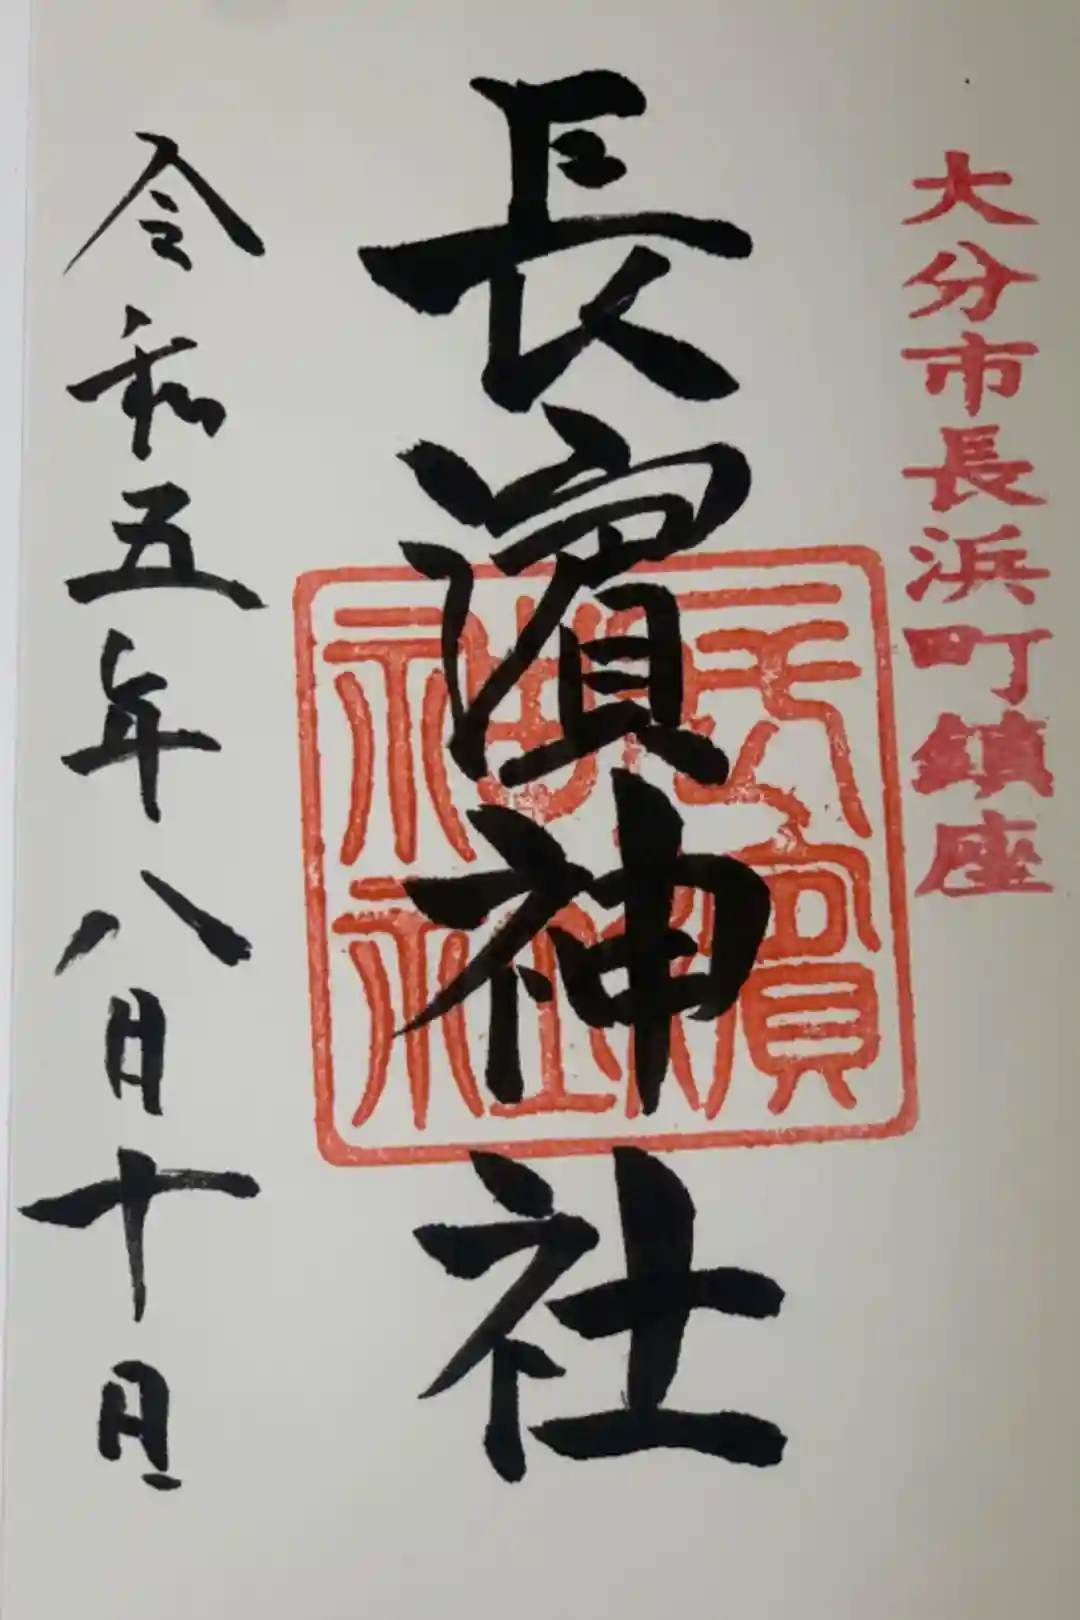 大分市長浜町鎮座
長濵神社
長濱神社
令和五年八月十日